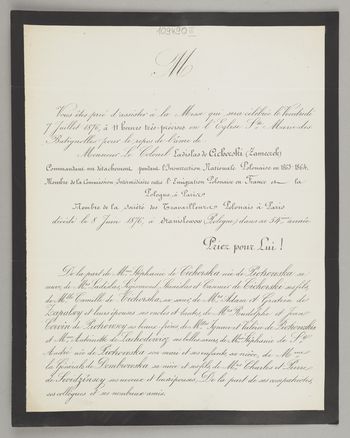 109490 II
M
Vous êtes prié d'assister à la Messe qui sera célébrée le Vendredi
7 Juillet 1876, à 11 heures très-précises en l'Eglise Ste Marie des
Batignolles pour le repos de l'âme de
Monsieur Le Colonel Ladislas de Cichocski (Zameczek)
Commandant un détachement pendant l'Insurrection Nationale Polonaise en 1863-1864,
Membre de la Commission Intermédiaire entre l'Emigration Polonaise en France et la
Pologne à Paris
Membre de la Société des Travailleurs Polonais à Paris
décédé le 8 Juin 1876, à Stanislawow (Pologne) dans sa 34e année.
Priez pour Lui!
De la part de Mme Stéphanie de Cichorska née de Piotrowska sa
mère, de Mrs Ladislas, Sigismond, Stanislas et Casimir de Cichorski ses fils,
de Mlle Camille de Cichorska, sa sœur, de Mrs Adam et Gratien de
Zapalsky et leurs épouses ses oncles et tantes, de Mrs Rodolphe et Jean
Corvin de Piotrowsky ses beaux frères, de Mmes Ignace et Valérie de Piotrowska
et Mme Antoinette de Lachodowicz ses belles sœurs, de Mme Stéphanie de St
André née de Piotrowska son mari et ses enfants sa nièce, de Mme
la Générale de Dombrowska sa nièce et ses fils, de Mrs Charles et Pierre
de ses neveux et leurs épouses. De la part de ses compatriotes,
ses collègues et ses nombreux amis.